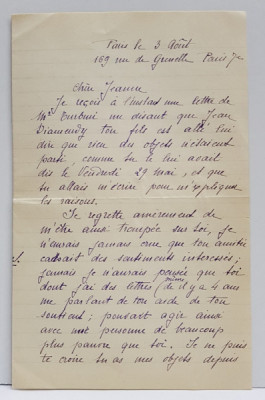 Paris le 3 Août
169 rue de Grenelle Paris 7e
Chère Jeanne
Je reçois à l'instant une lettre de
Mr me disant que Jean
Diamendy ton fils est allé lui
dire que rien du objets n'étaient
parti, comme tu le lui avait
dis le Vendredi 29 mai, et que
tu allais m'écrire pour m'expliquer
les raisons.
Je regrette amèrement de
m'être ainsi trompée sur toi, je
n'aurais jamais crue que ton amitié
cachait des sentiments intéressés;
jamais je n'aurais pensée que toi
dont j'ai des lettres même de il y a 4 ans
me parlant de ton aide de ton
soutient; pouvait agir ainsi
avec une personne de beaucoup
plus pauvre que toi. Je ne puis
te croire tu as mes objets depuis